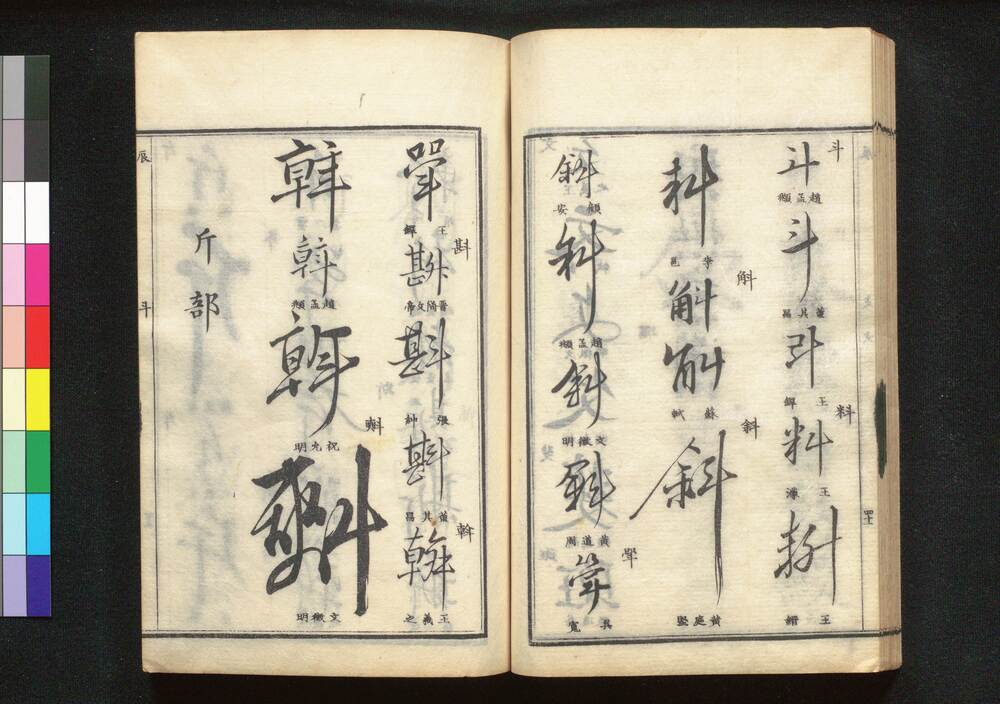 斗
斗
趙孟頫
斗
董其昌
斗
王鐸
料
料
料
王縉
料
李邕
斛
斛
斛
蘇軾
斜
斜
黃庭堅
斜
斜
趙孟頫
斜
文徵明
斜
黃道周
斝
斝
吳寬
斝
王鐸
斟
斟
斟
斟
董其昌
斡
斡
王羲之
斡
斡
趙孟頫
斡
祝允明
文徵明
斤部
辰
斗